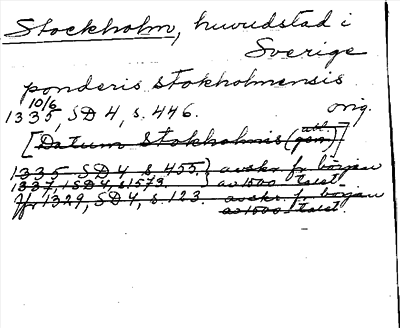 Stockholm, huvudstad i
Sverige
ponderis stokholmensis
10/6
1335, SD 4, s. 446. orig.
[Datum Stokholmis (
1335 SD 4 s. 455.) avskr. fr. början
1337, SD 4, s. 573. av 1500-talet
Jfr 1329, SD 4, s. 123. avskr. fr. början
av 1500-talet.